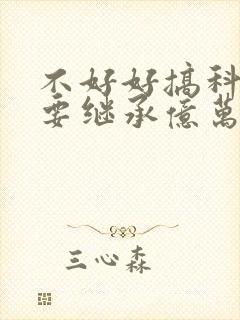 不好好搞科
要继承億萬
三心森